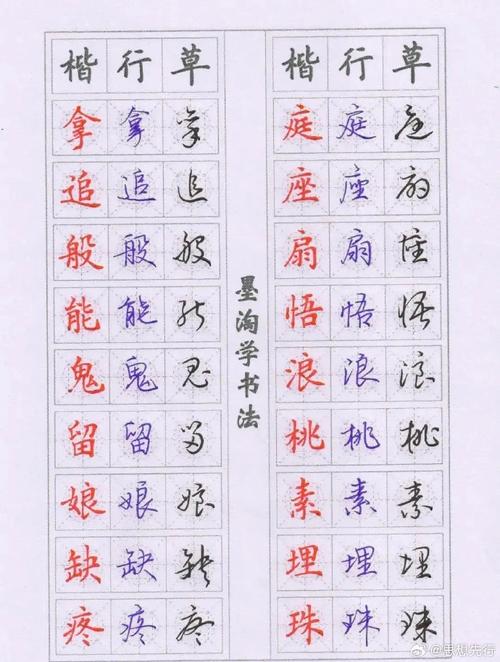 楷行草
拿拿拿
追追追
般般般
能能能
鬼鬼鬼
留留留
娘娘娘
缺缺缺
疼疼疼
墨淘学书法
楷行草
庭庭庭
座座扇
扇扇座
悟悟悟
浪浪浪
桃桃桃
素素素
埋埋埋
珠珠珠
@思想先行